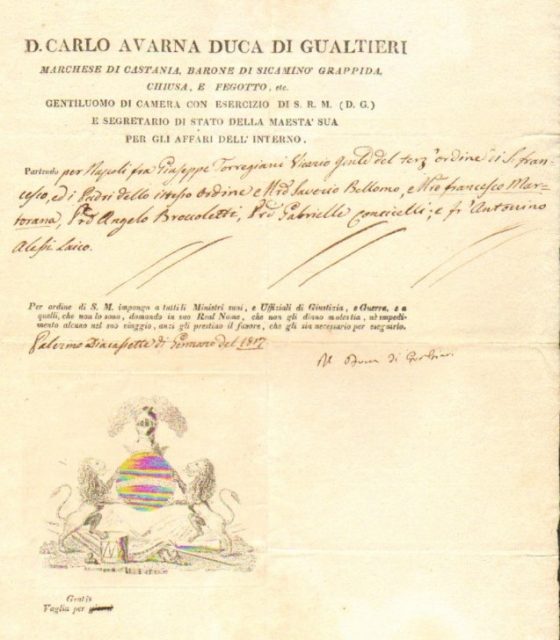 D. CARLO AVARNA DUCA DI GUALTIERI
MARCHESE DI CASTANIA, BARONE DI SICAMINO' GRAPPIDA,
CHIUSA, E FEGOTTO, etc.
GENTILUOMO DI CAMERA CON ESERCIZIO DI S. R. M. (D. G.)
E SEGRETARIO DI STATO DELLA MAESTA' SUA
PER GLI AFFARI DELL' INTERNO.
Partendo per Napoli fra Giuseppe Torregiani Vicario Gnle del terz' ordine di S. fran-
cesco, ed i Padri dello istesso Ordine e Mro Saverio Bellomo, e Mro francesco Mar-
torana, Prd Angelo Broccoletti, Prd Gabrielle Conticelli; e fr' Antonino
Alessi Laico.
Per ordine di S. M. impongo a tutti li Ministri suoi, e Uffiziali di Giustizia, e Guerra, e a
quelli, che non lo sono, domando in suo Real Nome, che non gli diano molestia, nè impedi-
mento alcuno nel suo viaggio, anzi gli prestino il favore, che gli sia necessario per eseguirlo.
Palermo Diacassette di Gennaro del 1817
Il Duca di Gualtieri
Gratis
Vaglia per giorni